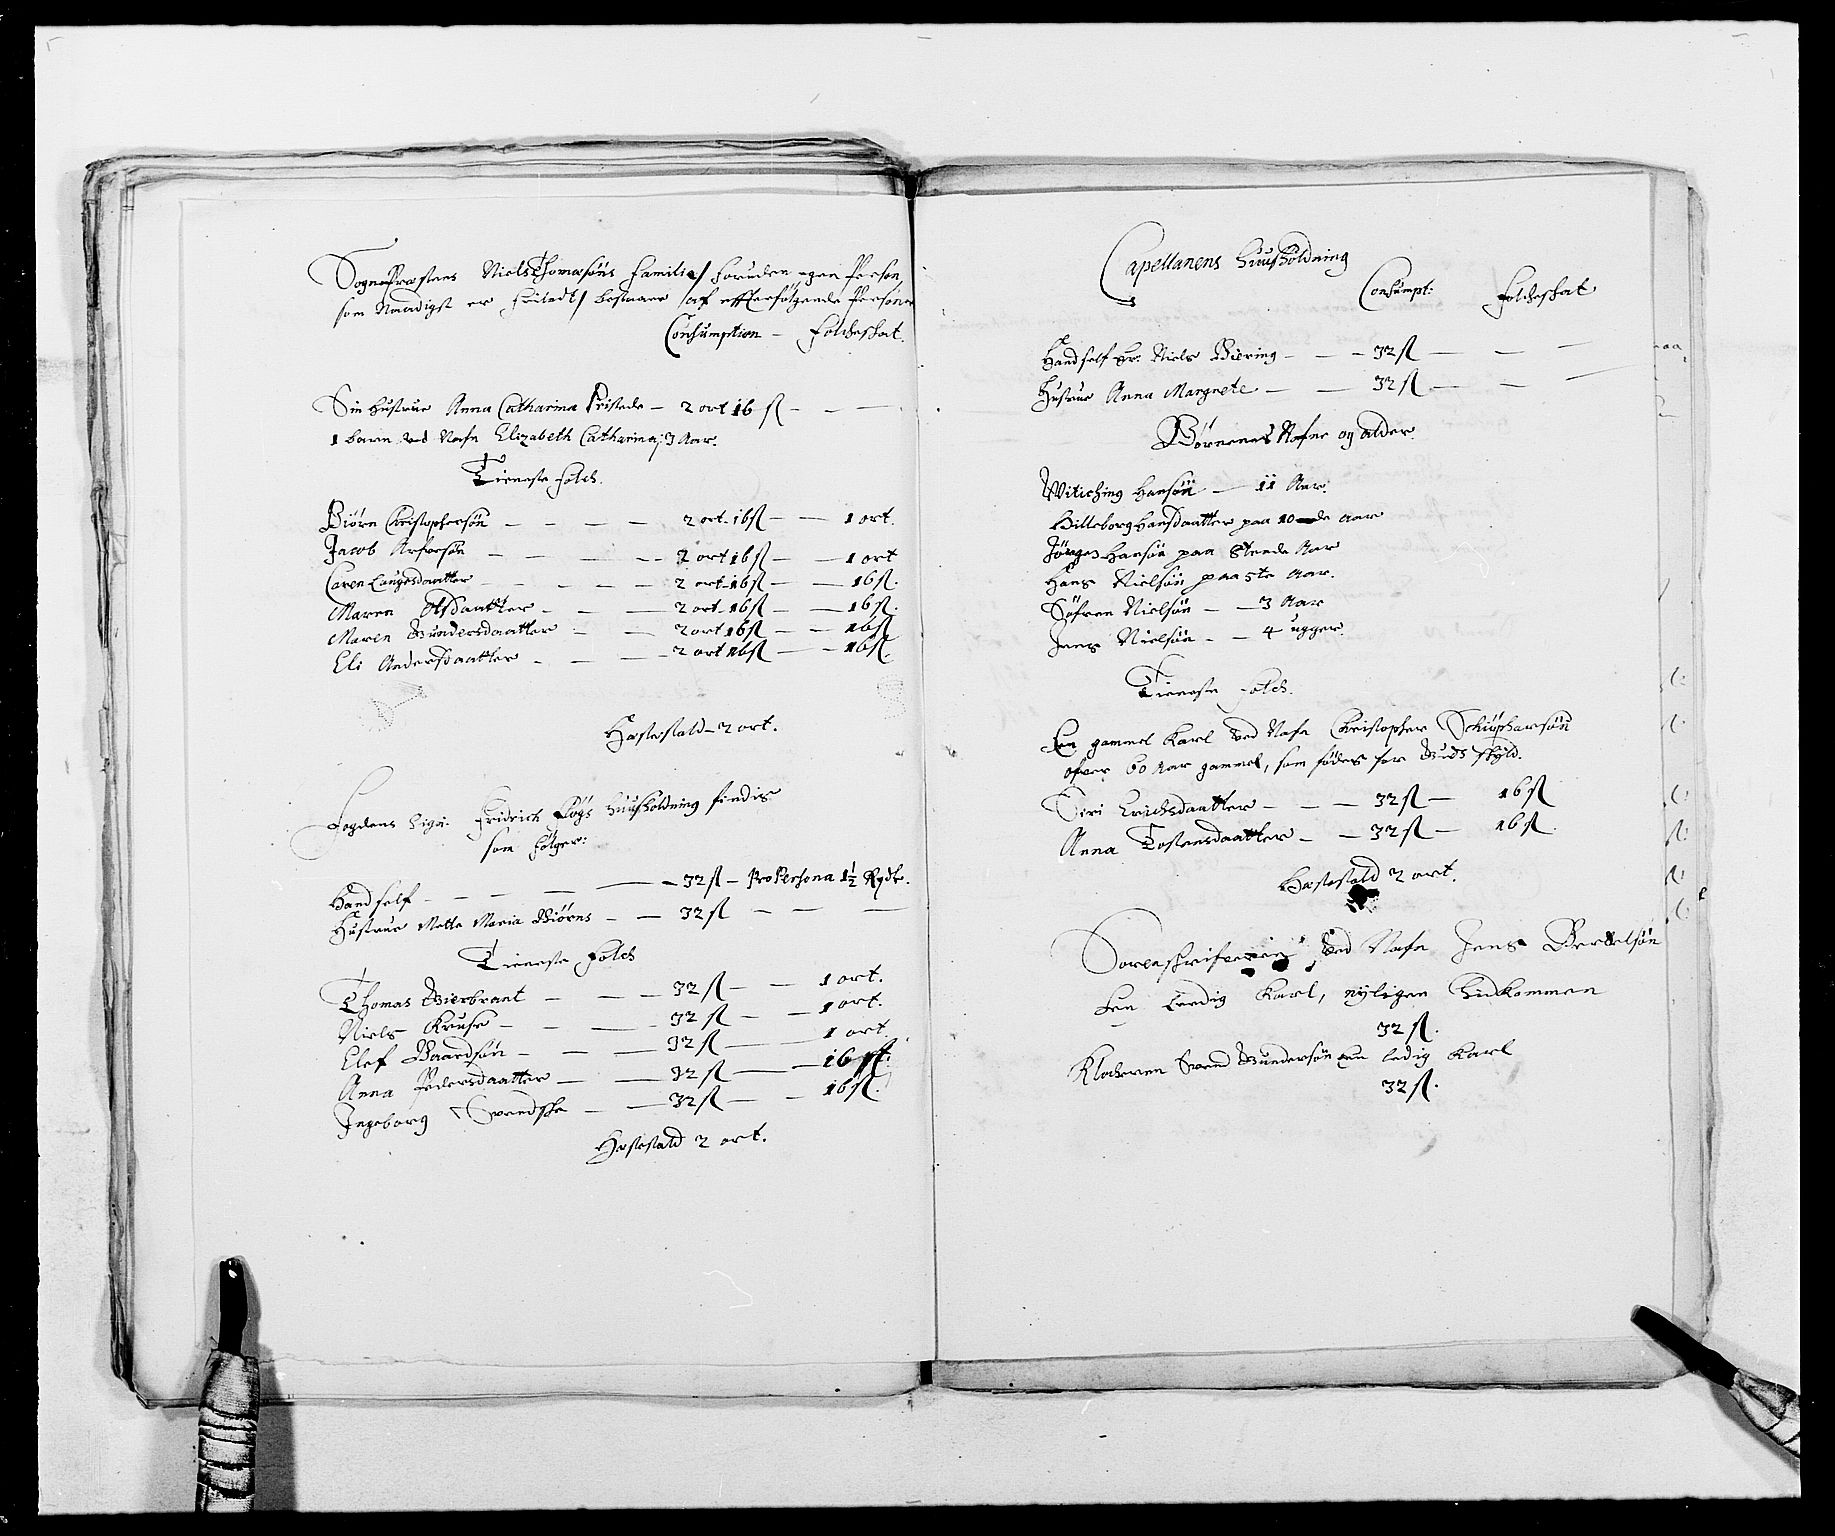 SognePræstens Niels Thomæsøns Familie / foruden egen Persohn
som Naadigst er friladt / bestaaer af effterfølgende Persohner
Conhumption – Folcheskat.
Sin hustrue Anna Catharina Fristede – 2 ort 16 sl – – –
1 barn ved Nafn Elizabeth Catharina, 3 Aar.
Tieneste folch.
Biørn Christophersøn – – – – 2 ort 16 sl – – 1 ort.
Jacob – – – – 2 ort 16 sl – – 1 ort
Caren Laugesdaatter – – – – 2 ort 16 sl – – 16 sl.
Maren – – – 2 ort 16 sl – – 16 sl.
Maren Gundersdaatter – – – 2 ort 16 sl – – 16 sl
Eli Andersdaatter – – – 2 ort 16 sl – – 16 sl.
Hæstestald – 2 ort.
Fogdens Sigr. Fridrich huusholdning findis
som følger:
Hand self – – – – 32 sl – Pro Persona 1½ Rxdlr.
Hustrue Mette Maria Biørns – – 32 sl – – –
Tieneste folch
Thomas Bierbrant – – – 32 sl – – 1 ort.
Niels Kruse – – – 32 sl – – 1 ort.
Elef Baardsøn – – – 32 sl – – 1 ort
Anna Pedersdaatter – – 32 sl – – 16 sl.
Ingeborg Svendske – – 32 sl – – 16 sl.
Hæstestald 2 ort.
Capellanens huusholdning
Conhumpt: Folcheskat
Hand self Hr. Niels Biering – – – 32 sl – – –
Hustrue Anna Margrete – – 32 sl – – –
Børnenes Nafne og alder.
Witiching Hansøn – 11 Aar.
Hilleborg Hansdaatter paa 10 de aar
Jørgen Hansøn paa 8tende Aar
Hans Nielsøn paa 5te Aar.
Søfren Nielsøn – – 3 Aar
Jens Nielsøn – – 4 ugger.
Tieneste folch.
Een gammel Karl ved Nafn Christopher
ofver 60 Aar gammel, som fødes for Guds skyld.
Siri Erichsdaatter – – – 32 sl – 16 sl
Anna Tostensdaatter – – 32 sl – 16 sl.
Hæstestald 2 ort.
Sorenskrifveren ved Nafn Jens Bertelsøn
Een Leedig Karl, nyligen hidkommen
32 sl.
Klocheren Svend Gundersøn een ledig Karl
32 sl.